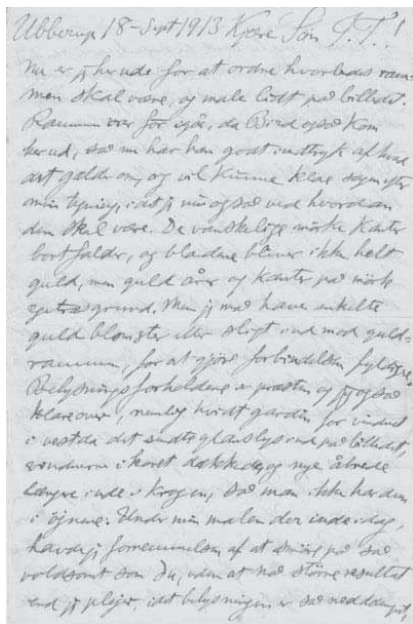 Ubberup 18-Sept 1913 Kjære Søn J.T.!
Nu er jeg herude for at ordne hvorledes ram-
men skal være, og male lidt på billedet.
Rammen var før igår, da Bind også kom
herud, så nu har han godt indtryk af hvad
det gælder om, og vil kunne klare sagen efter
min tegning, idet jeg nu også ved hvordan
den skal være. De vanskelige mörke kanter
bortfalder, og bladene bliver ikke helt
guld, men guld årer og kanter på mörk
grund. Men jeg må have enkelte
guld blomster eller sligt ind mod guld-
rammen, for at gjöre forbindelsen fyldigere.
Belysningsforholdene er præsten og jeg også
klare over, nemlig hvidt gardin for vinduet
i vest, da det sendte glanslys ind på billedet,
vinduerne i koret dækkes og nye åbnede
længre inde i krogen, så man ikke har dem
i öjnene. Under min malen der inde idag,
havde jeg fornemmelsen af at smöre på så
voldsomt som Du, uden at nå större resultat
end jeg plejer, idet belysningen er så neddæmpet,